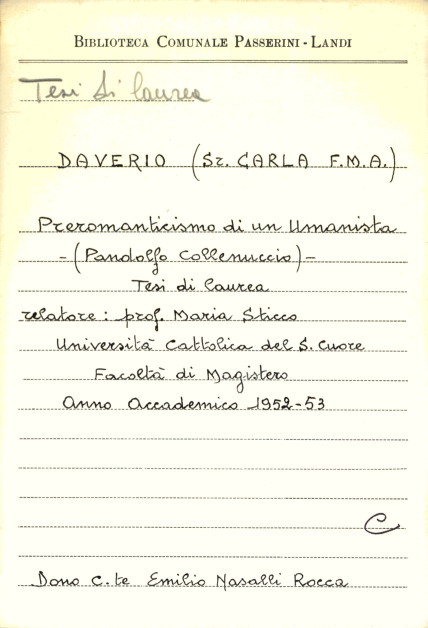 BIBLIOTECA COMUNALE PASSERINI-LANDI
Tesi di laurea
DAVERIO (Sr. CARLA F.M.A.)
Preromanticismo di un Umanista
-(Pandolfo Collenuccio)-
Tesi di laurea
relatore: prof. Maria Sticco
Università Cattolica del S. Cuore
Facoltà di Magistero
Anno Accademico 1952-53
C
Dono C.te Emilio Nasalli Rocca